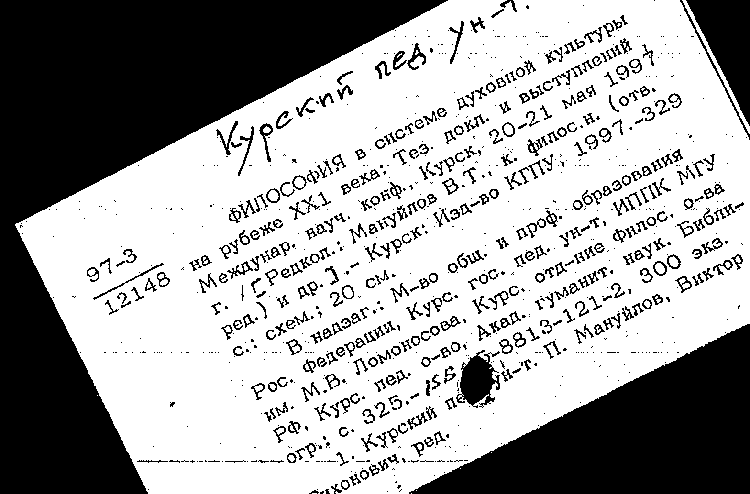 Курский пед. ун-т.
97-3
12148
ФИЛОСОФИЯ в системе духовной культуры
на рубеже XX1 века: Тез. докл. и выступлений
Междунар. науч. конф., Курск, 20-21 мая 1997
г. /[Редкол.: Мануйлов В.Т., к. филос.н. (отв.
ред.) и др.].- Курск: Изд-во КГПУ, 1997.-329
с.: схем.; 20 см.
В надзаг.: М-во общ. и проф. образования
Рос. Федерации, Курс. гос. пед. ун-т, ИППК МГУ
им. М.В. Ломоносова, Курс. отд-ние филос. о-ва
РФ, Курс. пед. о-во, Акад. гуманит. наук. Библи-
огр.: с. 325.- -8813-121-2, 300 экз.
1. Курский ун-т. П. Мануйлов, Виктор
Тихонович, ред.